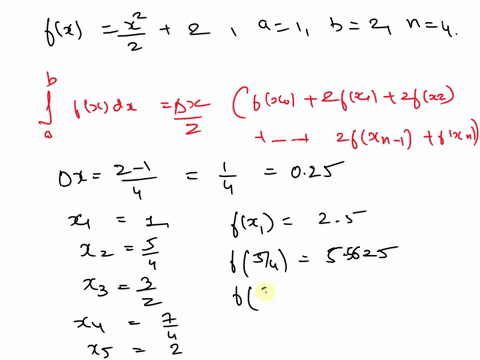 f(x) = x²/2 + 2 , a=1, b=2, n=4.
∫ₐᵇ f(x)dx = Δx/2 (f(x₀) + 2f(x₁) + 2f(x₂)
+ -- + 2f(xn-1) + f(xn)
Δx = 2-1/4 = 1/4 = 0.25
x₁ = 1 f(x₁) = 2.5
x₂ = 5/4 f(5/4) = 5.5625
x₃ = 3/2 f(
x₄ = 7/4
x₅ = 2